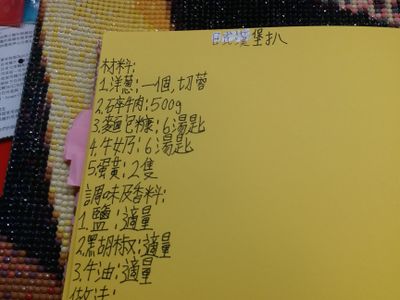 日式漢堡扒
材料:
1.洋蔥:一個,切蓉
2.碎牛肉:500g
3.麵包糠:6湯匙
4.牛奶:6湯匙
5.蛋黃:2隻
調味及香料:
1.鹽:適量
2.黑胡椒:適量
3.牛油:適量
做法: